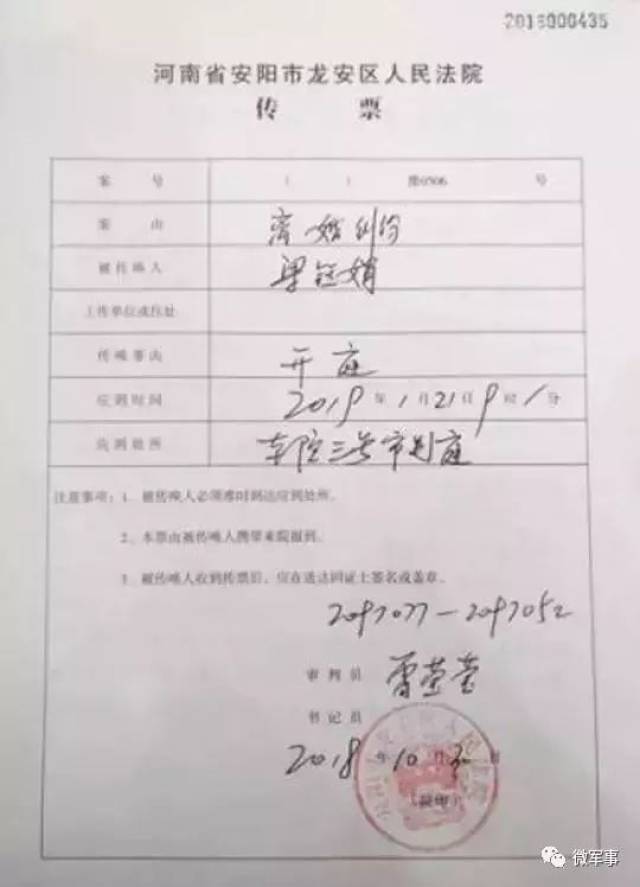 2018000435
河南省安阳市龙安区人民法院
传 票
案 号 ( ) 豫0506 号
案 由 离婚纠纷
被传唤人 梁钰娟
工作单位或住处
传唤事由 开庭
应到时间 2019年1月21日9时 分
应到处所 本院三号审判庭
注意事项:1、被传唤人必须准时到达应到处所。
2、本票由被传唤人携带来院报到。
3、被传唤人收到传票后,应在送达回证上签名或盖章。
2097077—2097052
审 判 员
书 记 员
2018 年 10 月 日
(院印)
微军事